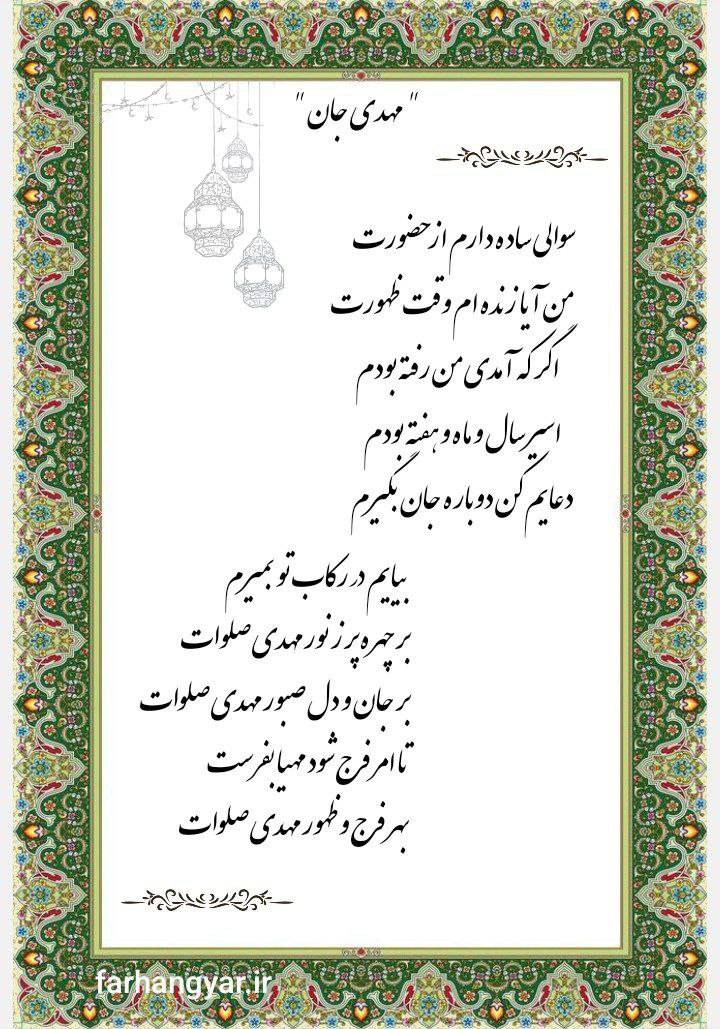 " مهدی جان "
سوالی ساده دارم از حضورت
من آیا زنده ام وقت ظهورت
اگر که آمدی من رفته بودم
اسیر سال و ماه و هفته بودم
دعایم کن دوباره جان بگیرم
بیایم در رکاب تو بمیرم
بر چهره پر ز نور مهدی صلوات
بر جان و دل صبور مهدی صلوات
تا امر فرج شود مهیا بفرست
بهر فرج و ظهور مهدی صلوات
farhangyar.ir